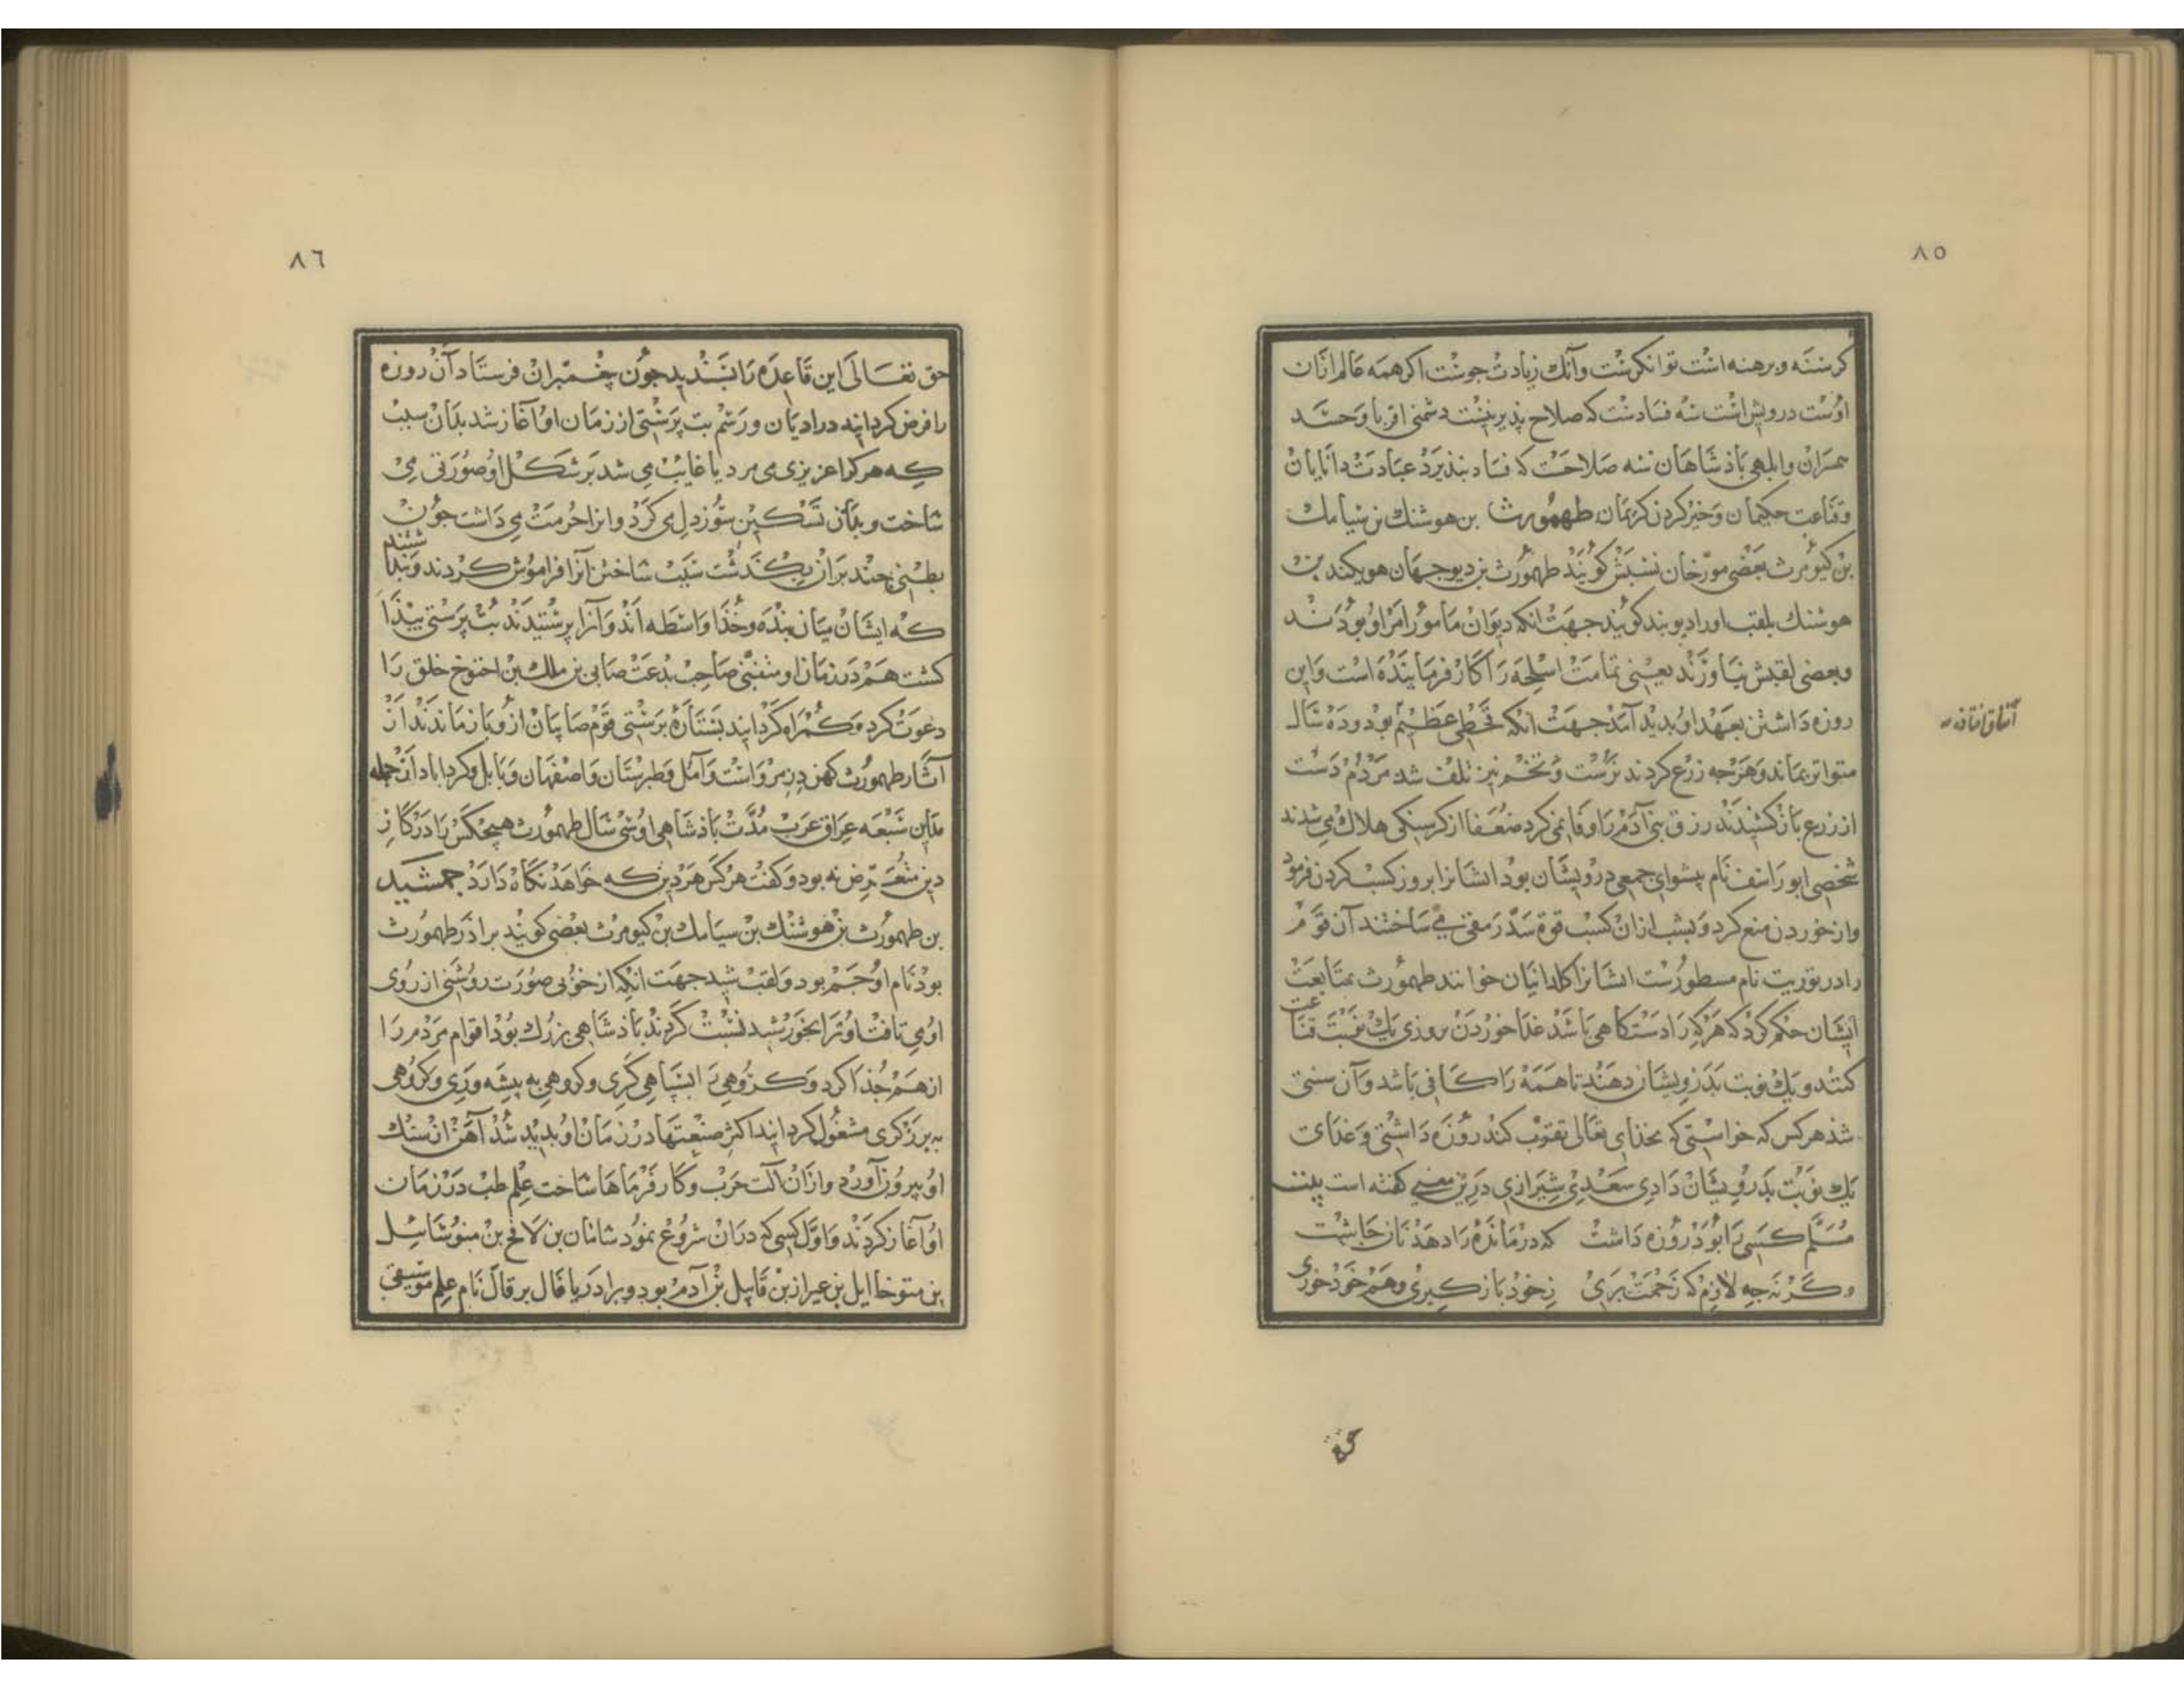 ٨٥
كرسنه وبرهنه است توانكرست وآنك زيادت جوست اكر همه عالم ازان
اوست درويش است سه فسادست كه صلاح پذير نيست دشمنى اقربا وحسد
همسران وابلهى باذشاهان سه صلاحست كه فساد نپذيرد عبادت دانايان
وقناعت حكيمان وخير كردن كريمان طهمورث بن هوشنك بن سيامك
بن كيومرث بعضى مورخان نسبش كويند طهمورث بن ديوجهان هويكند بن
هوشنك بلقب او را ديوبند كويند جهت انكه ديوان مأمور امر او بودند
وبعضى لقبش زيناوند يعنى تمامت اسلحه را كار فرماينده است واين
روزه داشتن بعهد او بديد آمد جهت انكه قحطى عظيم بود وده سال
متواتر بماند وهرجه زرع كردند نرست وتخم نيز تلف شد مردم دست
از زرع باز كشيدند رزق بنى آدم را وفا نمى كرد ضعفا از كرسنكى هلاك مى شدند
شخصى ابوراسف نام پيشواى جمعى درويشان بود ايشانرا بروز كسب كردن فرمود
واز خوردن منع كرد وبشب ازان كسب قوة سد رمقى مى ساختند آن قوم
را در توريت نام مسطورست ايشانرا كلدانيان خوانند طهمورث بمتابعت
ايشان حكم كرد كه هركه را دستكاهى باشد غذا خوردن بروزى يك نوبت قناعت
كنند ويك نوبت بدرويشان دهند تا همه را كافى باشد وآن سنتى
شد هركس كه خواستى كه بخداى تعالى تقرب كند روزه داشتى وغذاى
يك نوبت بدرويشان دادى سعدى شيرازى درين معنى كفته است بيت
مسلم كسى را بود روزه داشت كه درمانده را دهد نان چاشت
وكرنه چه لازم كه زحمت برى ز خود باز كيرى وهم خود خورى
٨٦
حق تعالى اين قاعده را پسنديد جون پيغمبران فرستاد آن روزه
را فرض كردانيد در اديان ورسم بت پرستى از زمان او آغاز شد بدان سبب
كه هر كرا عزيزى مى مرد يا غايب مى شد بر شكل او صورتى مى
ساخت وبدان تسكين سوز دل مى كرد وانرا حرمت مى داشت جون
بطنى چند بران بكذشت سبب ساختن آنرا فراموش كردند وپنداشتند
كه ايشان ميان بنده وخدا واسطه اند وآنرا پرستيدند بت پرستى پيدا
كشت هم در زمان او متنبى صاحب بدعت صابى بن ملك بن اخنوخ خلق را
دعوت كرد وكمراه كردانيد بستاره پرستى قوم صابيان ازو باز ماندند از
آثار طهمورث كهن دز مرو است وآمل وطبرستان واصفهان وبابل وكرداباد از جمله
مداين سبعه عراق عرب مدت باذشاهى او سى سال طهمورث هيچكس را در كار
دين متعرض نه بود وكفت هركس هر دين كه خواهد نكاه دارد جمشيد
بن طهمورث بن هوشنك بن سيامك بن كيومرث بعضى كويند براذر طهمورث
بود نام او جم بود ولقب شيد جهت انكه از خوبى صورت روشنى از روى
او مى تافت او را بخورشيد نسبت كردند باذشاهى بزرك بود اقوام مردم را
از هم جذا كرد وكروهى را بسپاهى كرى وكروهى به پيشه ورى وكروهى
به برزكرى مشغول كردانيد اكثر صنعتها در زمان او بديد شد آهن از سنك
او بيرون آورد وازان آلت حرب وكارفرماها ساخت علم طب در زمان
او آغاز كردند واول كسى كه دران شروع نمود شامان بن لامخ بن متوشائيل
بن متوخاايل بن عيراز بن قابيل بن آدم بود وبرادر يافال برقال نام علم موسيقى